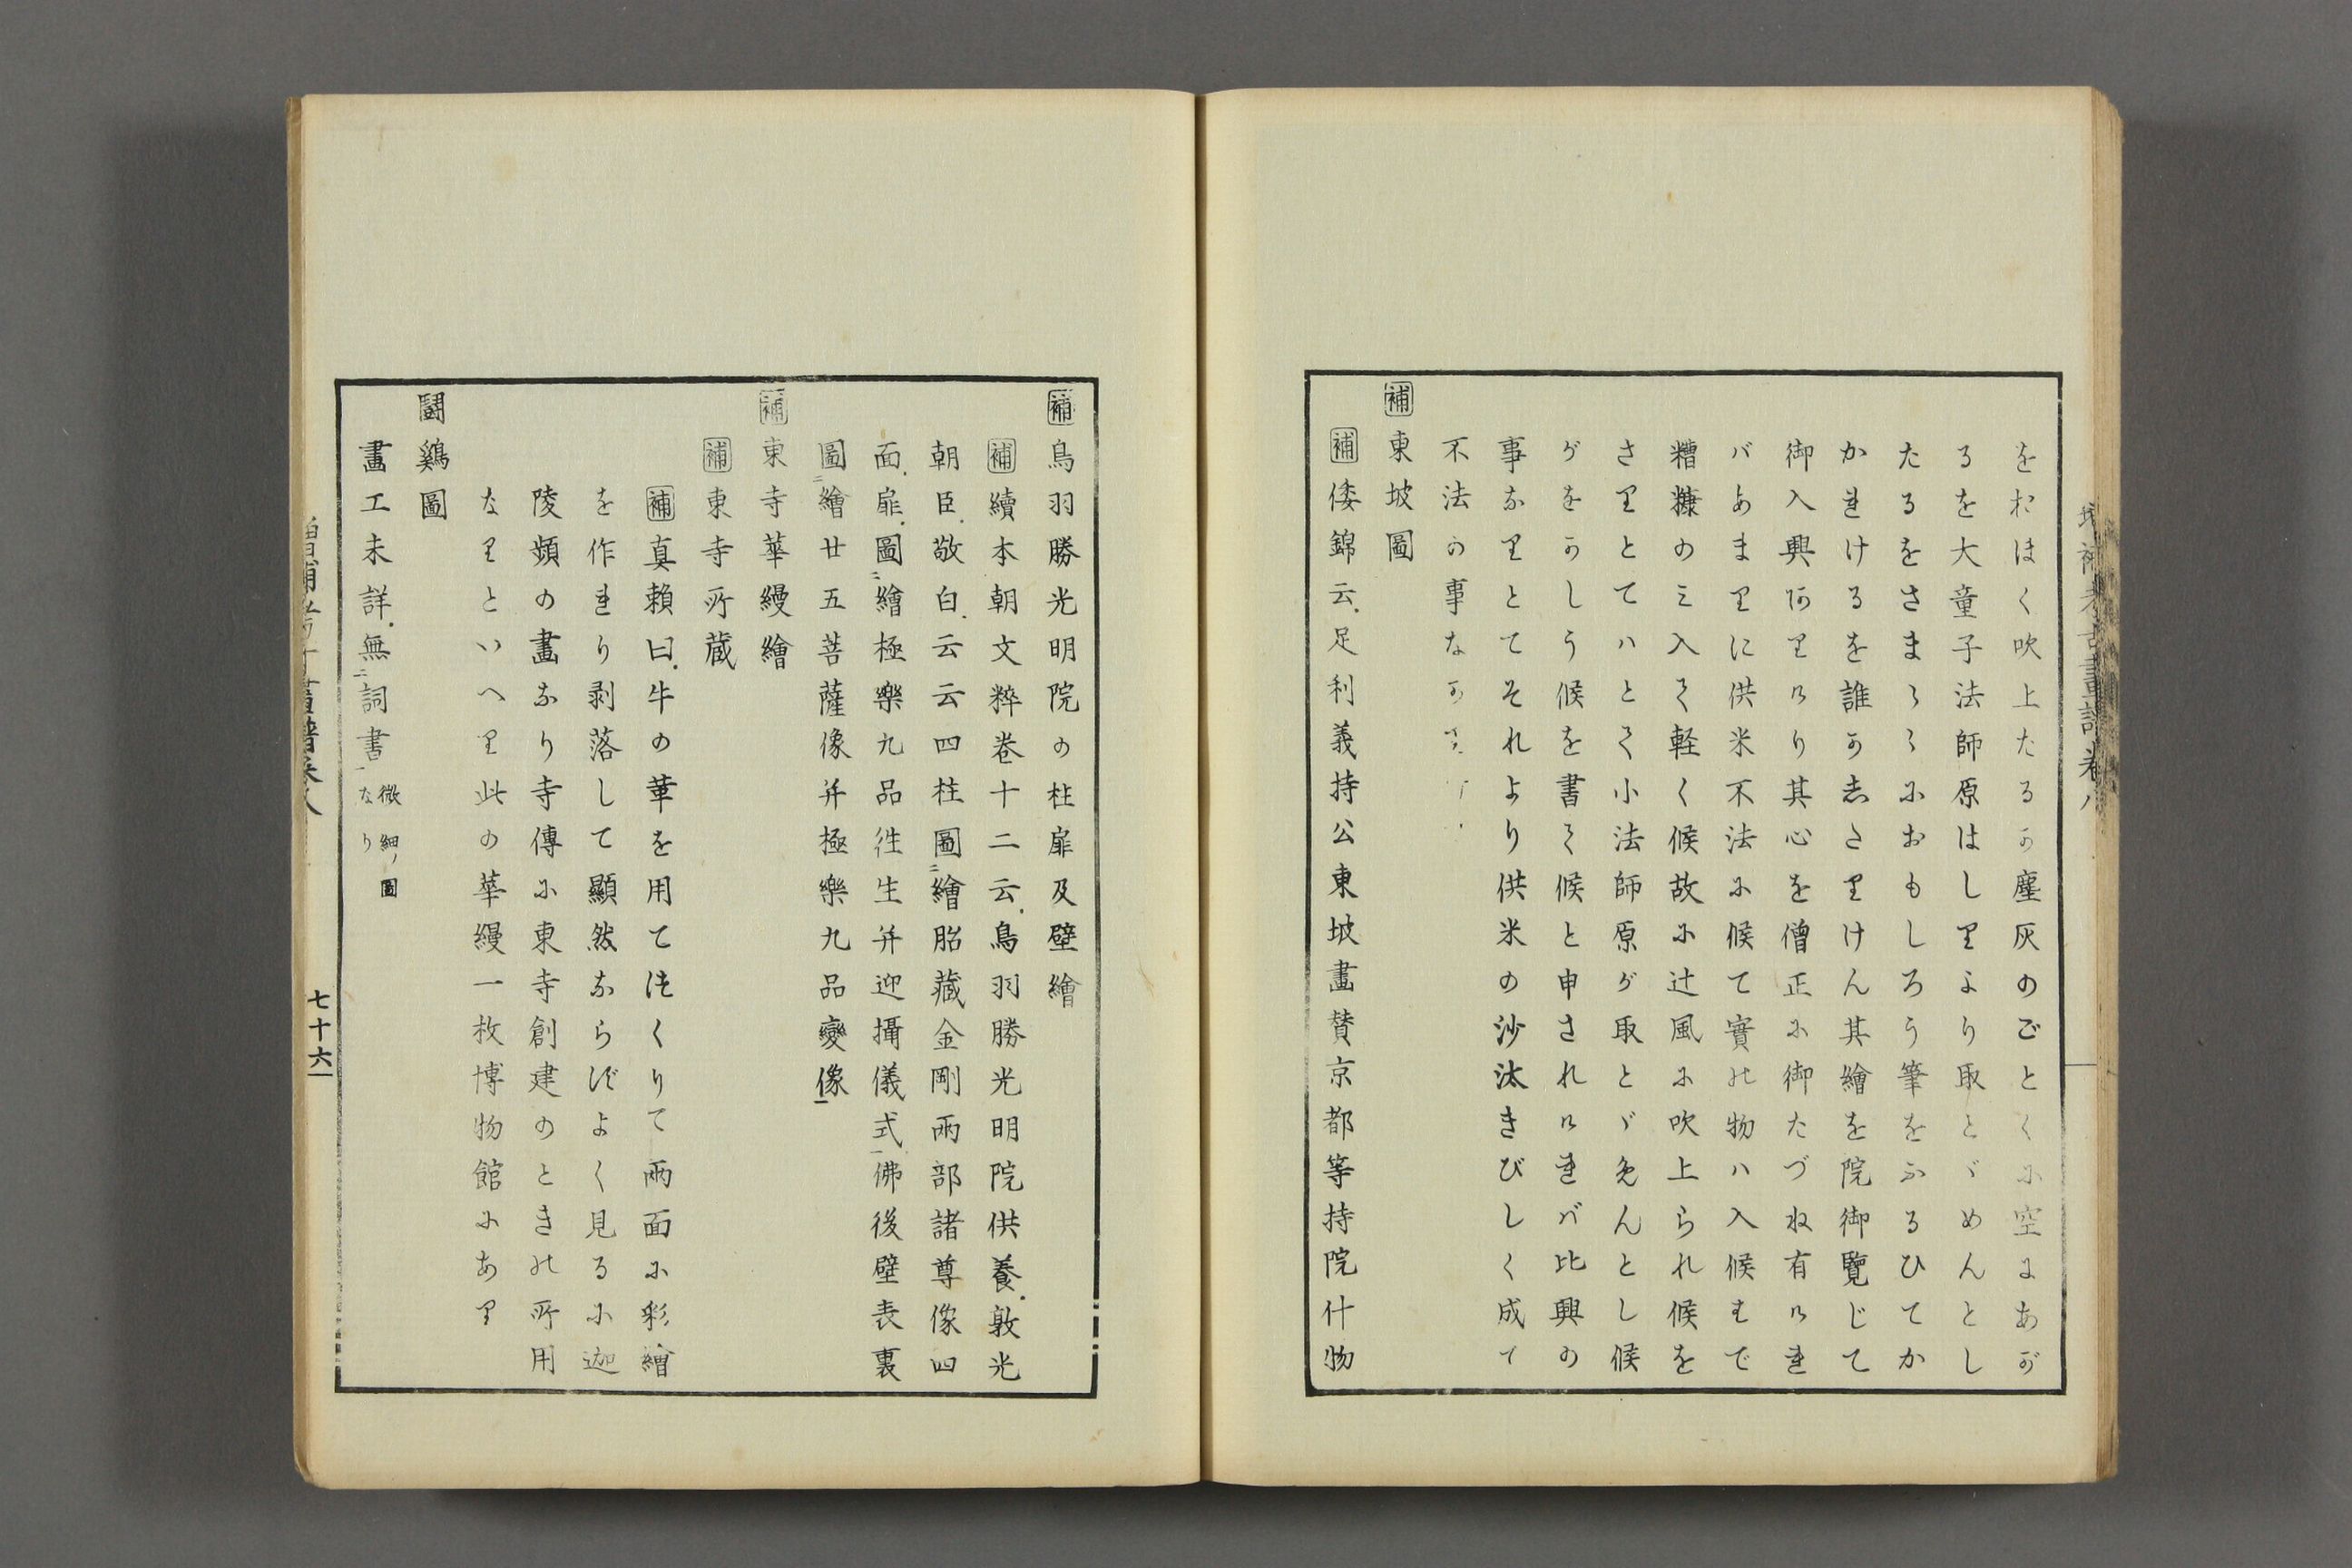 をおほく吹上たるか塵灰のごとくに空にあが
るを大童子法師原はしりより取とゞめんとし
たるをさま〳〵におもしろう筆をふるひてか
かれけるを誰かしたりけん其繪を院御覽じて
御入興ありけり其心を僧正に御たづね有けれ
バあまりに供米不法に候て實の物ハ入候はで
糟糠のミ入て軽く候故に辻風に吹上られ候を
さりとてハとて小法師原が取とゞめんとし候
がをかしう候を書て候と申されけれバ比興の
事なりとてそれより供米の沙汰きびしく成て
不法の事なか
補東坡圖
補倭錦云足利義持公東坡畫賛京都等持院什物
補鳥羽勝光明院の柱扉及壁繪
補續本朝文粹卷十二云鳥羽勝光明院供養敦光
朝臣敬白云云四柱圖繪胎藏金剛兩部諸尊像四
面扉圖繪極樂九品徃生并迎攝儀式佛後壁表裏
圖繪廿五菩薩像并極樂九品變像
補東寺華縵繪
補東寺所藏
補真賴曰牛の革を用てつくりて兩面に彩繪
を作れり剥落して顯然ならずよく見るに迦
陵頻の畫なり寺傳に東寺創建のときの所用
なりといへり此の華縵一枚博物館にあり
鬪鷄圖
畫工未詳無詞書 微細ノ圖なり
増補考古畫譜卷八
七十六